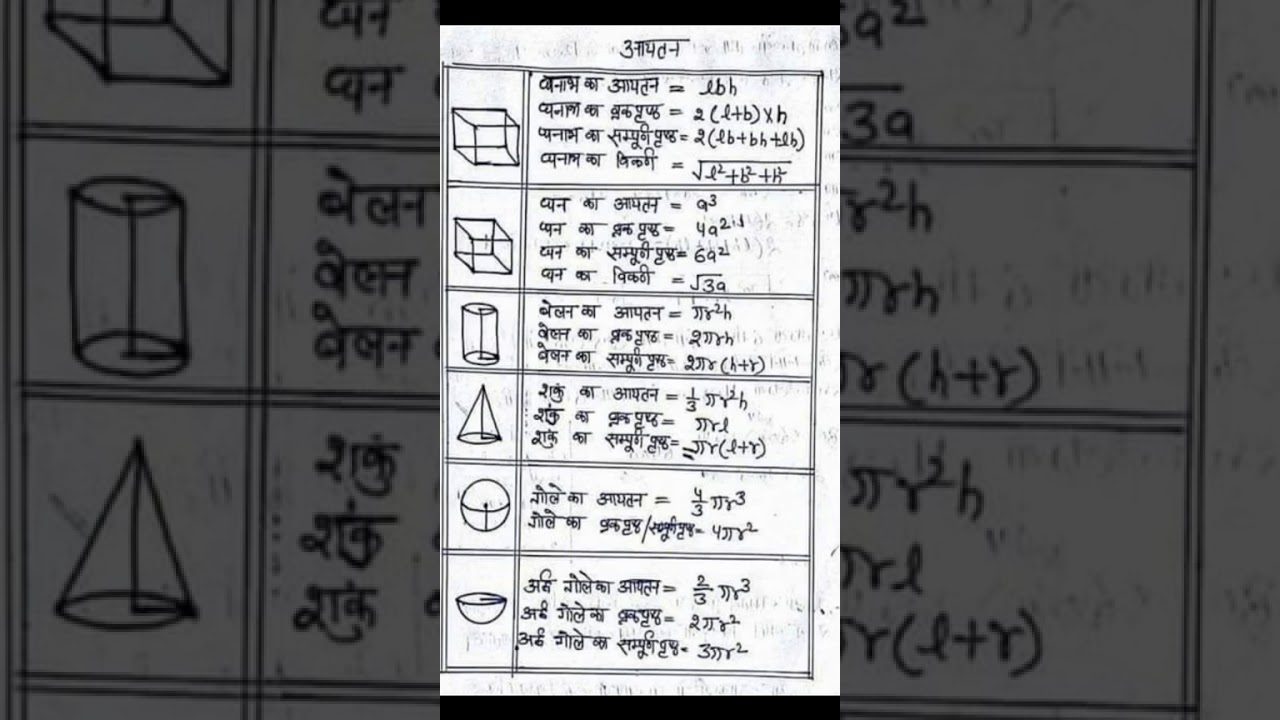 आयतन
घनाभ का आयतन = lbh
घनाभ का वक्रपृष्ठ = 2(l+b)×h
घनाभ का सम्पूर्ण पृष्ठ = 2(lb+bh+lb)
घनाभ का विकर्ण = √l²+b²+h²
घन का आयतन = a³
घन का वक्रपृष्ठ = 4a²
घन का सम्पूर्ण पृष्ठ = 6a²
घन का विकर्ण = √3a
बेलन का आयतन = πr²h
बेलन का वक्रपृष्ठ = 2πrh
बेलन का सम्पूर्ण पृष्ठ = 2πr(h+r)
शकुं का आयतन = 1/3 πr²h
शकुं का वक्रपृष्ठ = πrl
शकुं का सम्पूर्ण पृष्ठ = πr(l+r)
गोले का आयतन = 4/3 πr³
गोले का वक्रपृष्ठ/सम्पूर्ण पृष्ठ = 4πr²
अर्द्ध गोले का आयतन = 2/3 πr³
अर्द्ध गोले का वक्रपृष्ठ = 2πr²
अर्द्ध गोले का सम्पूर्ण पृष्ठ = 3πr²